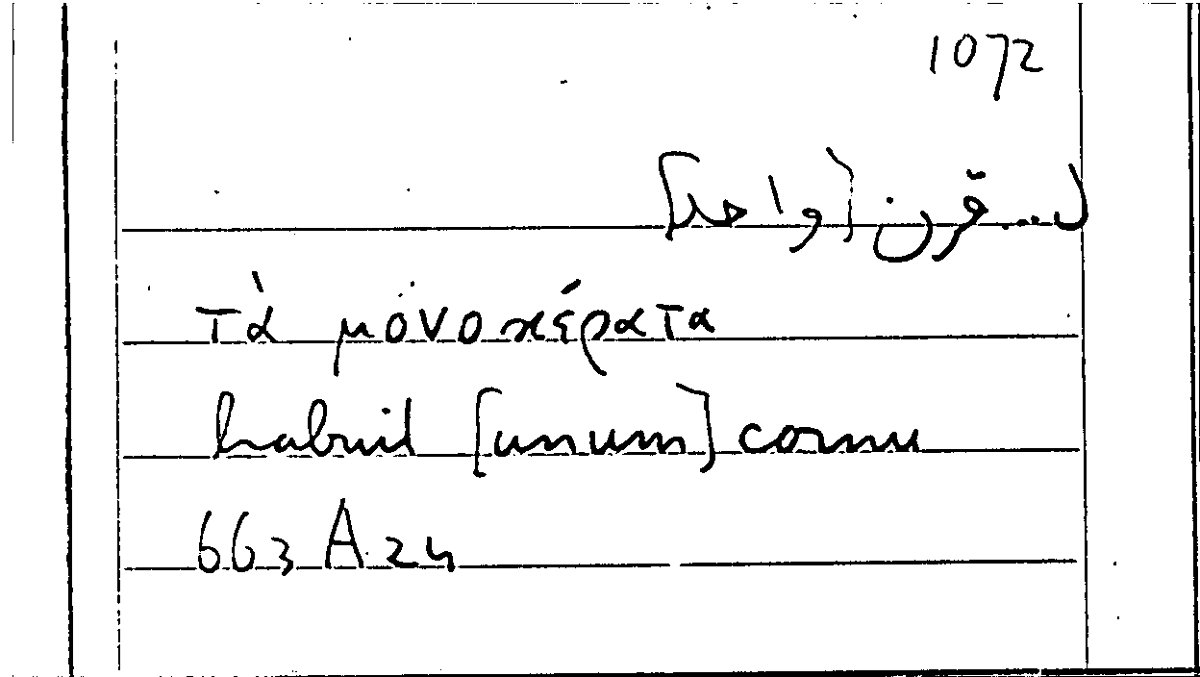 1072
لـ... قرن [واحد]
τὰ μόνοκέρατα
habuit [unum] cornu
663 A 24